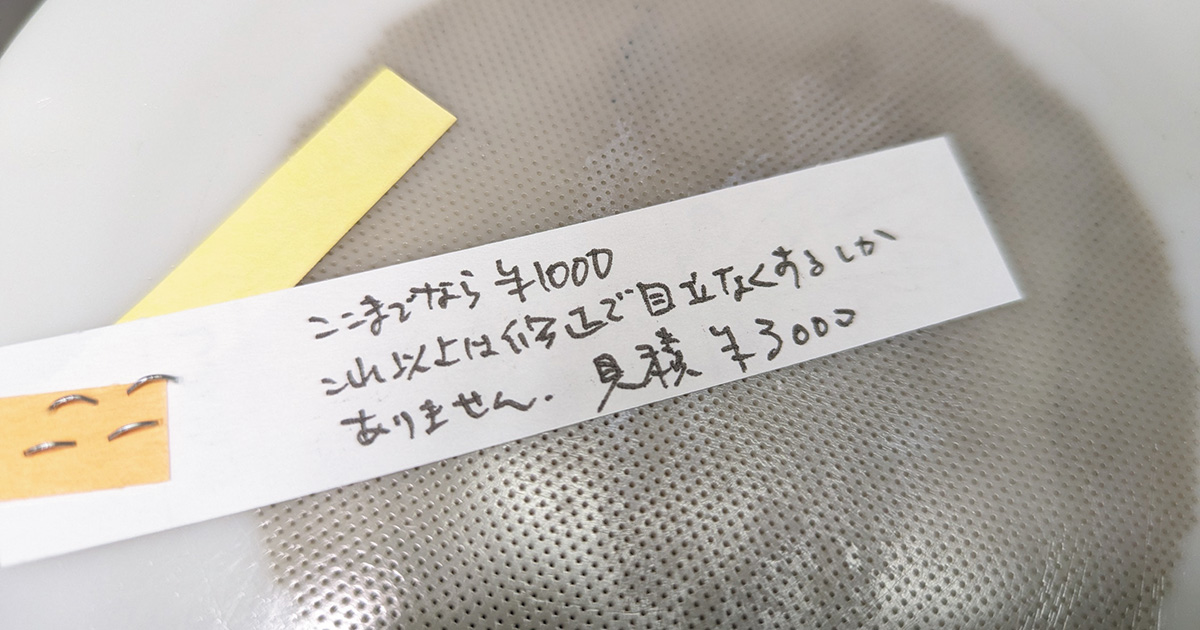 ここまでなら ¥1000
これ以上は修正で目立なくするしか
ありません. 見積 ¥3000